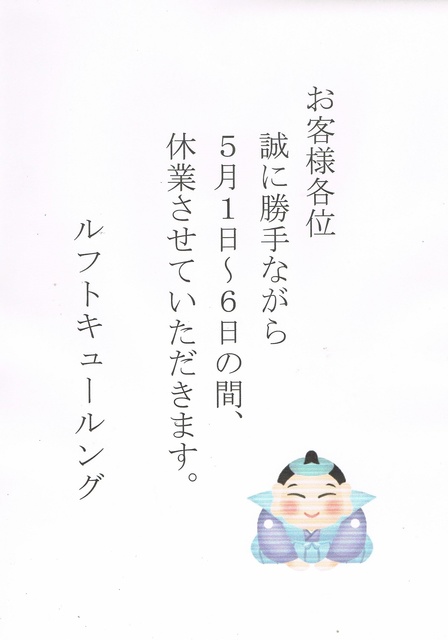 お客様各位
誠に勝手ながら
５月１日～６日の間、
休業させていただきます。
ルフトキュールング